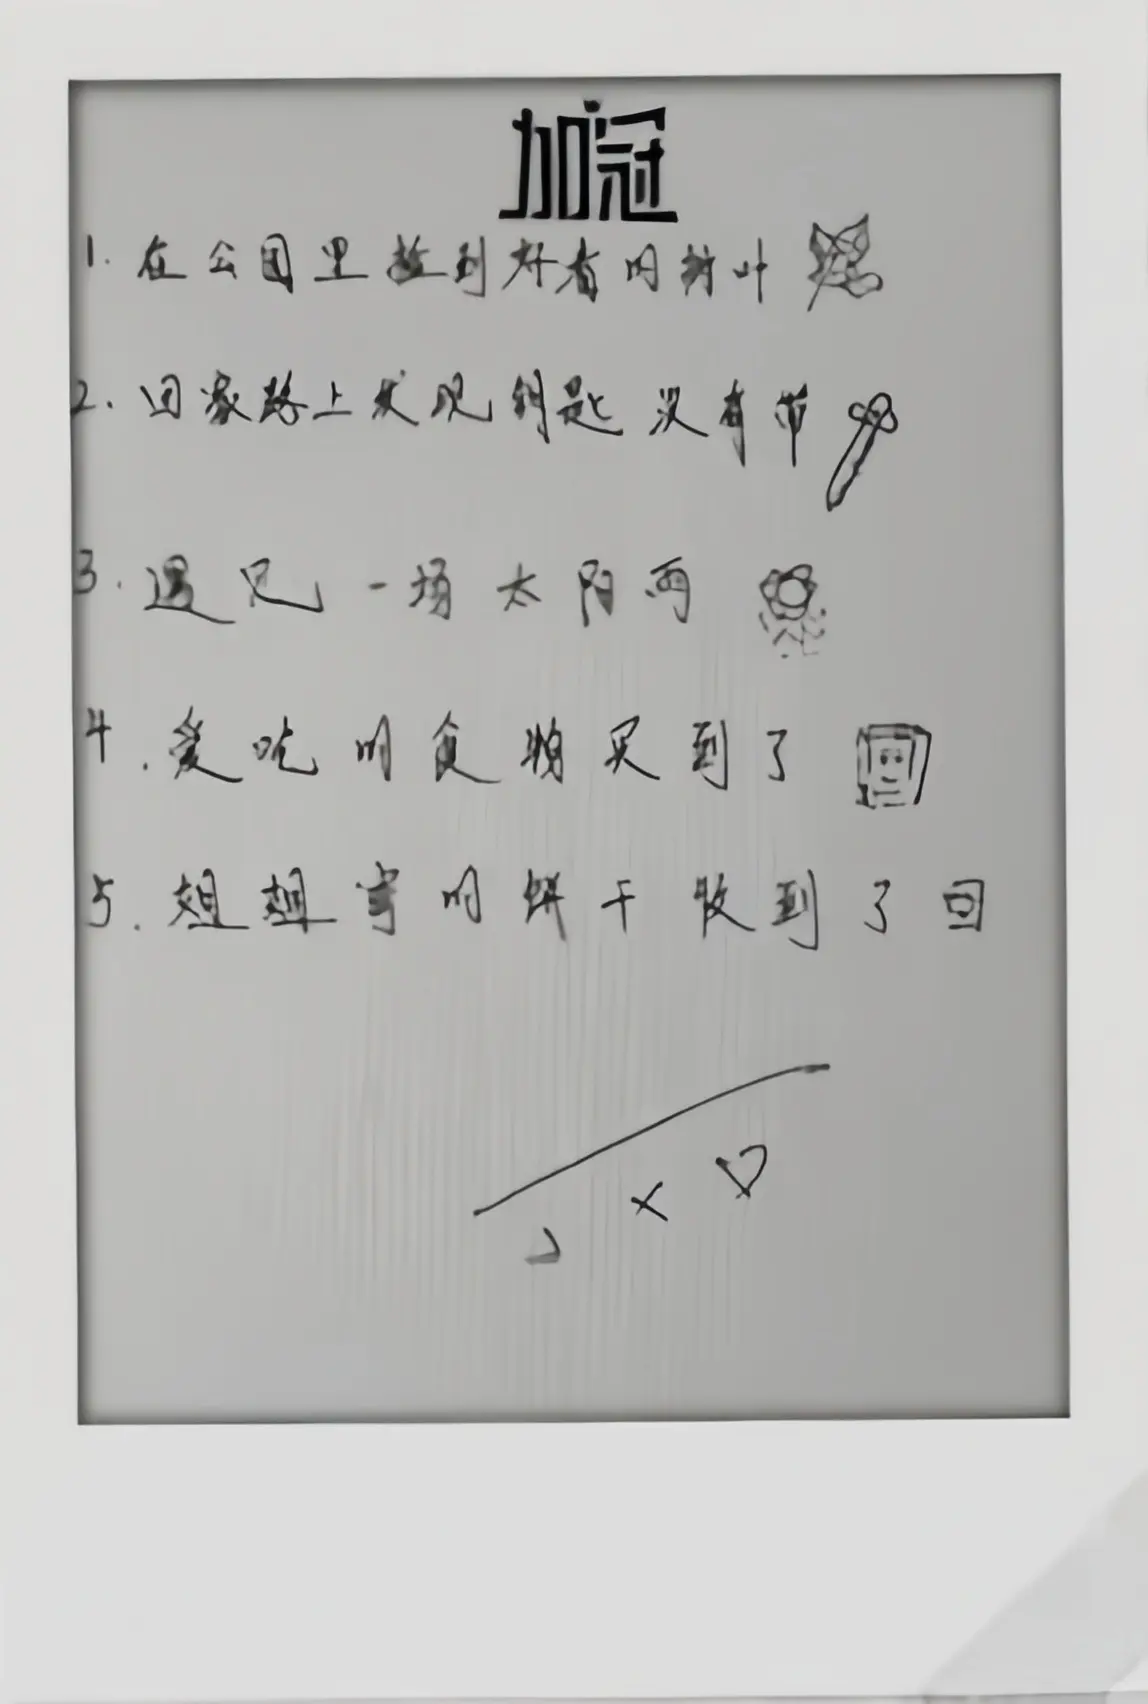 加冠
1. 在公园里捡到好看的树叶
2. 回家路上发现钥匙没有带
3. 遇见一场太阳雨
4. 爱吃的食物买到了
5. 姐姐寄的饼干收到了